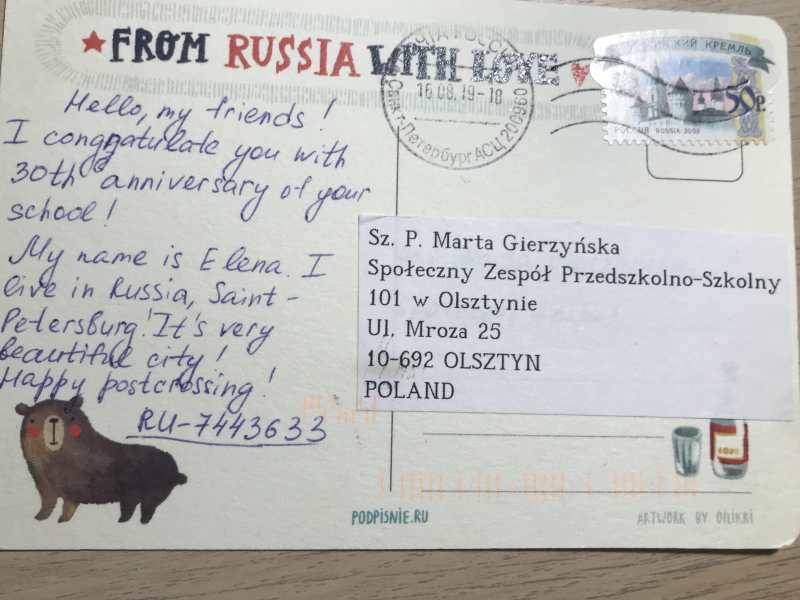 FROM RUSSIA WITH LOVE
16.08.19-18
Санкт-Петербург АСЦ 200960
КРЕМЛЬ
50р
РОССИЯ RUSSIA 2009
Hello, my friends!
I congratulate you with
30th anniversary of your
school!
My name is Elena. I
live in Russia, Saint-
Petersburg! It's very
beautiful city!
Happy postcrossing!
RU-7443633
Sz. P. Marta Gierzyńska
Społeczny Zespół Przedszkolno-Szkolny
101 w Olsztynie
Ul. Mroza 25
10-692 OLSZTYN
POLAND
PODPISNIE.RU
ARTWORK BY OILIKKI